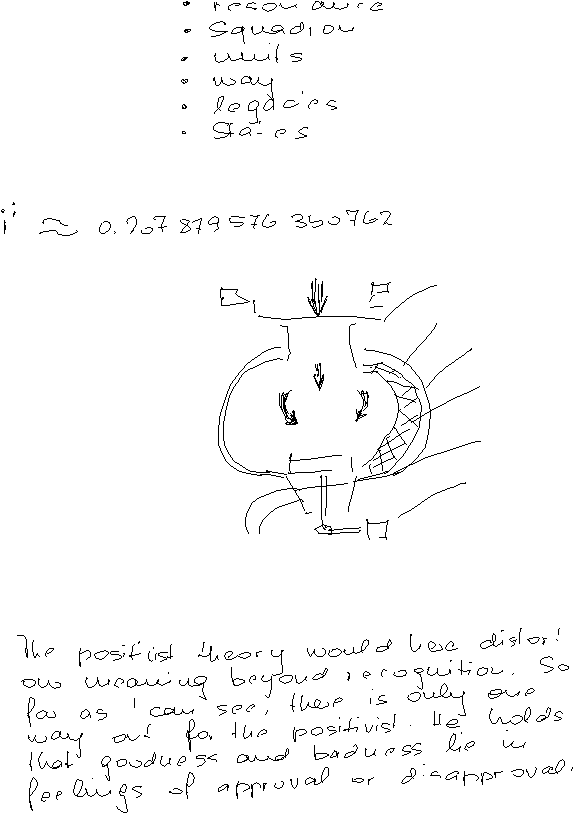 • resonance
• Squadron
• units
• way
• legacies
• States
i^i ≈ 0.207 879 576 350762
The positivist theory would here distort
our meaning beyond recognition. So
far as I can see, there is only one
way out for the positivist. He holds
that goodness and badness lie in
feelings of approval or disapproval.